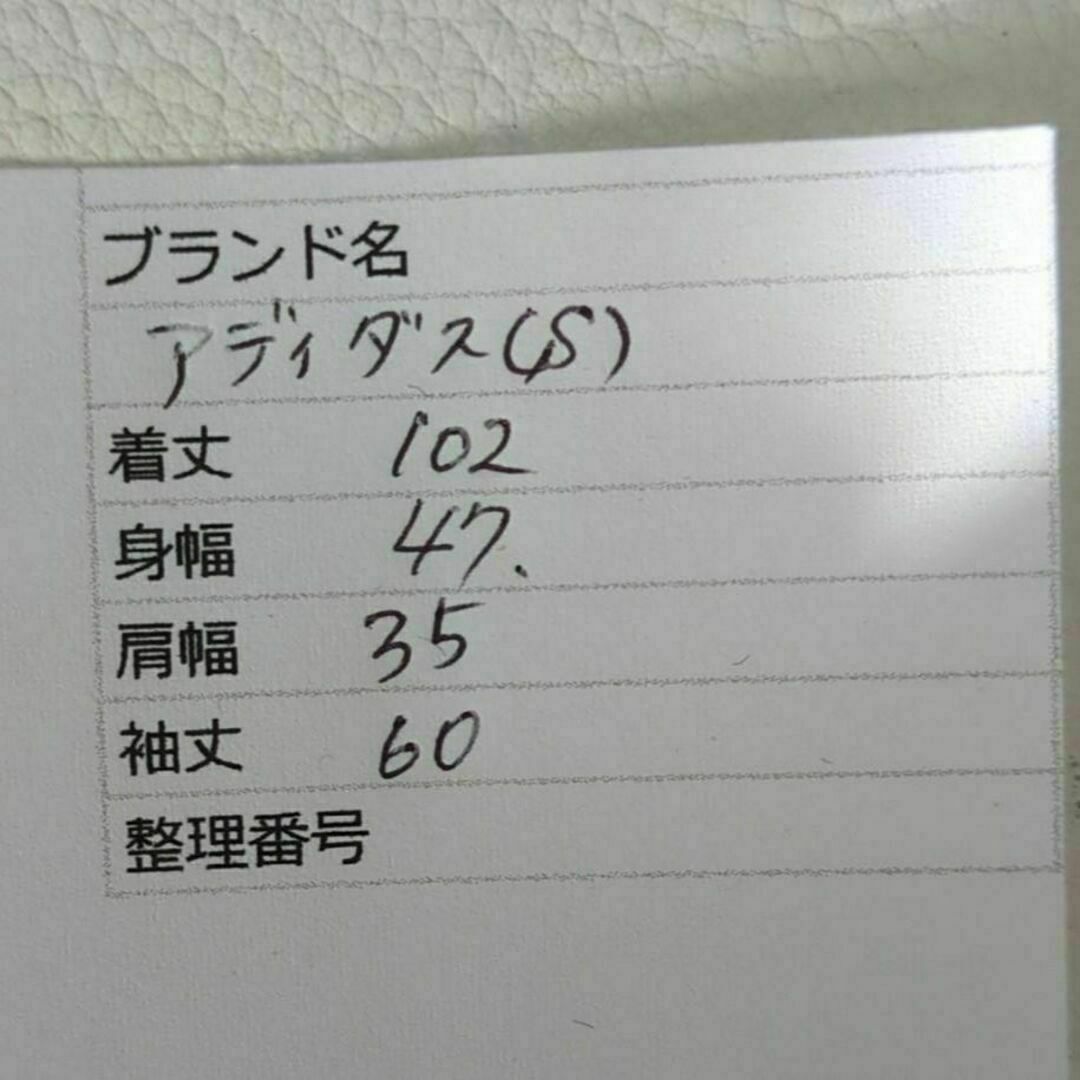 ブランド名
アディダス(S)
着丈 102
身幅 47.
肩幅 35
袖丈 60
整理番号